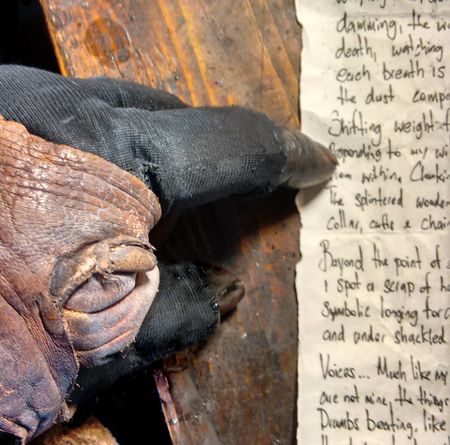 damming, the w
death, watching
each breath is
the dust comp
Shifting weight f
responding to my wi
from within. Clunkin
The splintered wooden
collar, cuffs & chain
Beyond the point of s
I spot a scrap of h
Symbolic longing for
and under shackled
Voices... Much like my
are not mine, the things
Drumbs beating, like